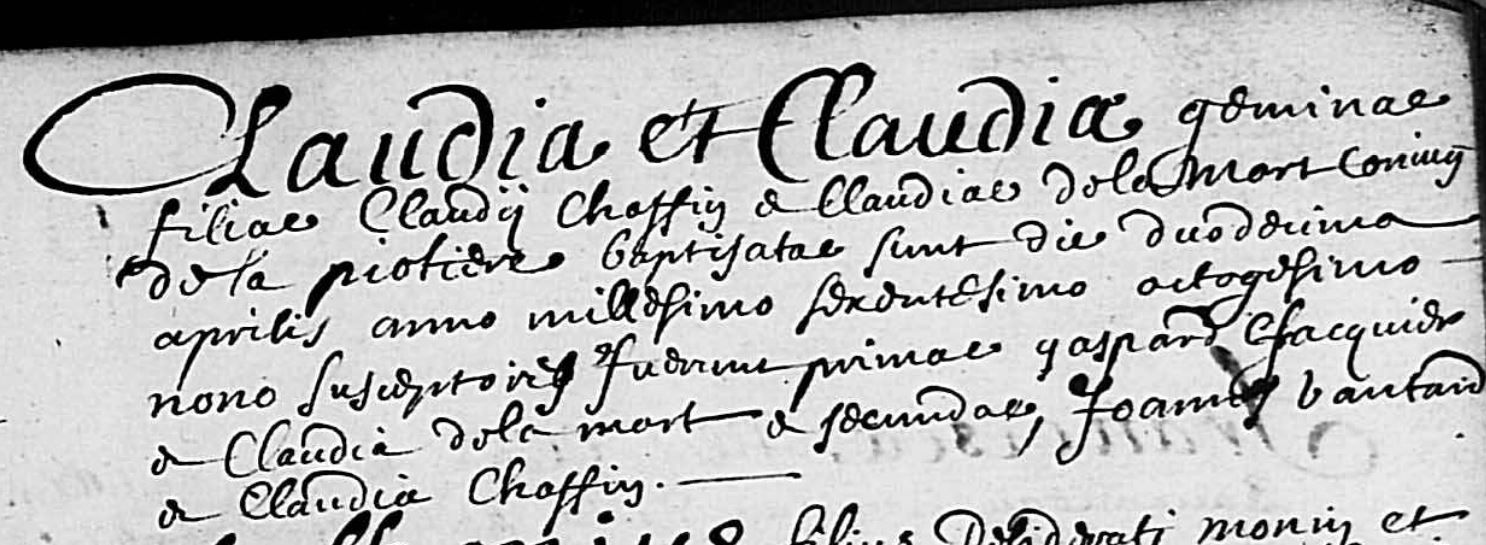 Claudia et Claudia geminae
filiae Claudij Choffin & Claudiae dela Mort coniug
de la piotiere baptisatae sunt die duodecima
aprilis anno millesimo sexentesimo octogesimo
nono susceptores fuerunt primae gaspard Jacquier
& Claudia dela mort & secundae, Joannes vautard
& Claudia Choffin.
filius Desiderati monin et